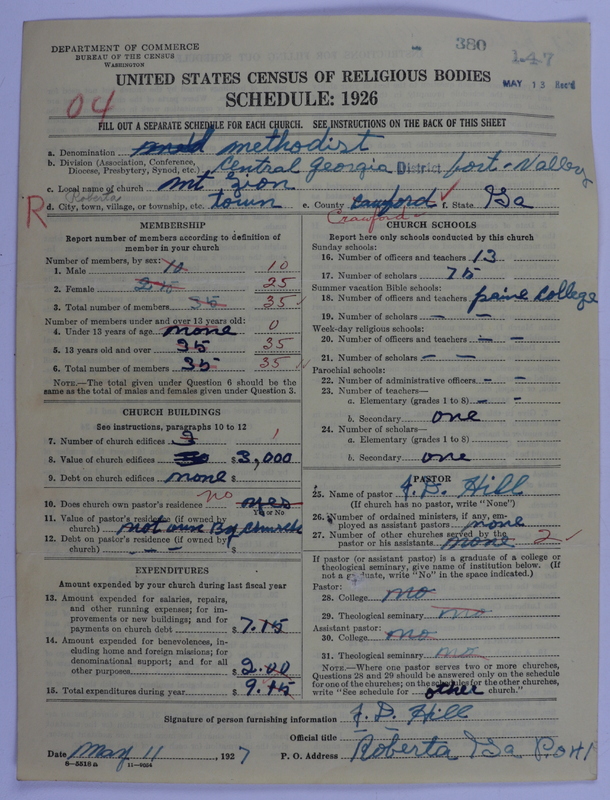 DEPARTMENT OF COMMERCE
BUREAU OF THE CENSUS
WASHINGTON
380
147
MAY 13 Rec'd
UNITED STATES CENSUS OF RELIGIOUS BODIES
SCHEDULE: 1926
04
FILL OUT A SEPARATE SCHEDULE FOR EACH CHURCH. SEE INSTRUCTIONS ON THE BACK OF THIS SHEET
a. Denomination methodist
b. Division (Association, Conference, Diocese, Presbytery, Synod, etc.) Central Georgia District fort-Valley
c. Local name of church mt zion
R
Roberta
d. City, town, village, or township, etc. town e. County Crawford f. State Ga
Crawford
MEMBERSHIP
Report number of members according to definition of
member in your church
Number of members, by sex:
1. Male 10 10
2. Female 25
3. Total number of members 35 35
Number of members under and over 13 years old:
4. Under 13 years of age none 0
5. 13 years old and over 35 35
6. Total number of members 35 35
NOTE.—The total given under Question 6 should be the
same as the total of males and females given under Question 3.
CHURCH BUILDINGS
See instructions, paragraphs 10 to 12
7. Number of church edifices 1
8. Value of church edifices $3,000
9. Debt on church edifices none $
no
10. Does church own pastor's residence? yes
Yes or No
11. Value of pastor's residence (if owned by
church) not own By Church
12. Debt on pastor's residence (if owned by
church) — — — $
EXPENDITURES
Amount expended by your church during last fiscal year
13. Amount expended for salaries, repairs,
and other running expenses; for im-
provements or new buildings; and for
payments on church debt $ 7.15
14. Amount expended for benevolences, in-
cluding home and foreign missions; for
denominational support; and for all
other purposes. $ 2.00
15. Total expenditures during year $ 9.15
CHURCH SCHOOLS
Report here only schools conducted by this church
Sunday schools:
16. Number of officers and teachers 13
17. Number of scholars 75
Summer vacation Bible schools:
18. Number of officers and teachers paine College
19. Number of scholars — —
Week-day religious schools:
20. Number of officers and teachers — —
21. Number of scholars — —
Parochial schools:
22. Number of administrative officers — —
23. Number of teachers—
a. Elementary (grades 1 to 8) — -
b. Secondary one
24. Number of scholars—
a. Elementary (grades 1 to 8)
b. Secondary one
PASTOR
25. Name of pastor J. D. Hill
(If church has no pastor, write "None")
26. Number of ordained ministers, if any, em-
ployed as assistant pastors none
27. Number of other churches served by the
pastor or his assistants none 2
If pastor (or assistant pastor) is a graduate of a college or
theological seminary, give name of institution below. (If
not a graduate, write "No" in the space indicated.)
Pastor:
28. College no
29. Theological seminary no
Assistant pastor:
30. College no
31. Theological seminary no
NOTE.—Where one pastor serves two or more churches,
Questions 28 and 29 should be answered only on the schedule
for one of the churches; on the schedules for the other churches,
write "See schedule for other church."
Signature of person furnishing information J. D. Hill
Official title — —
Date May 11, 1927 P. O. Address Roberta Ga
8—5518 a 11—9054